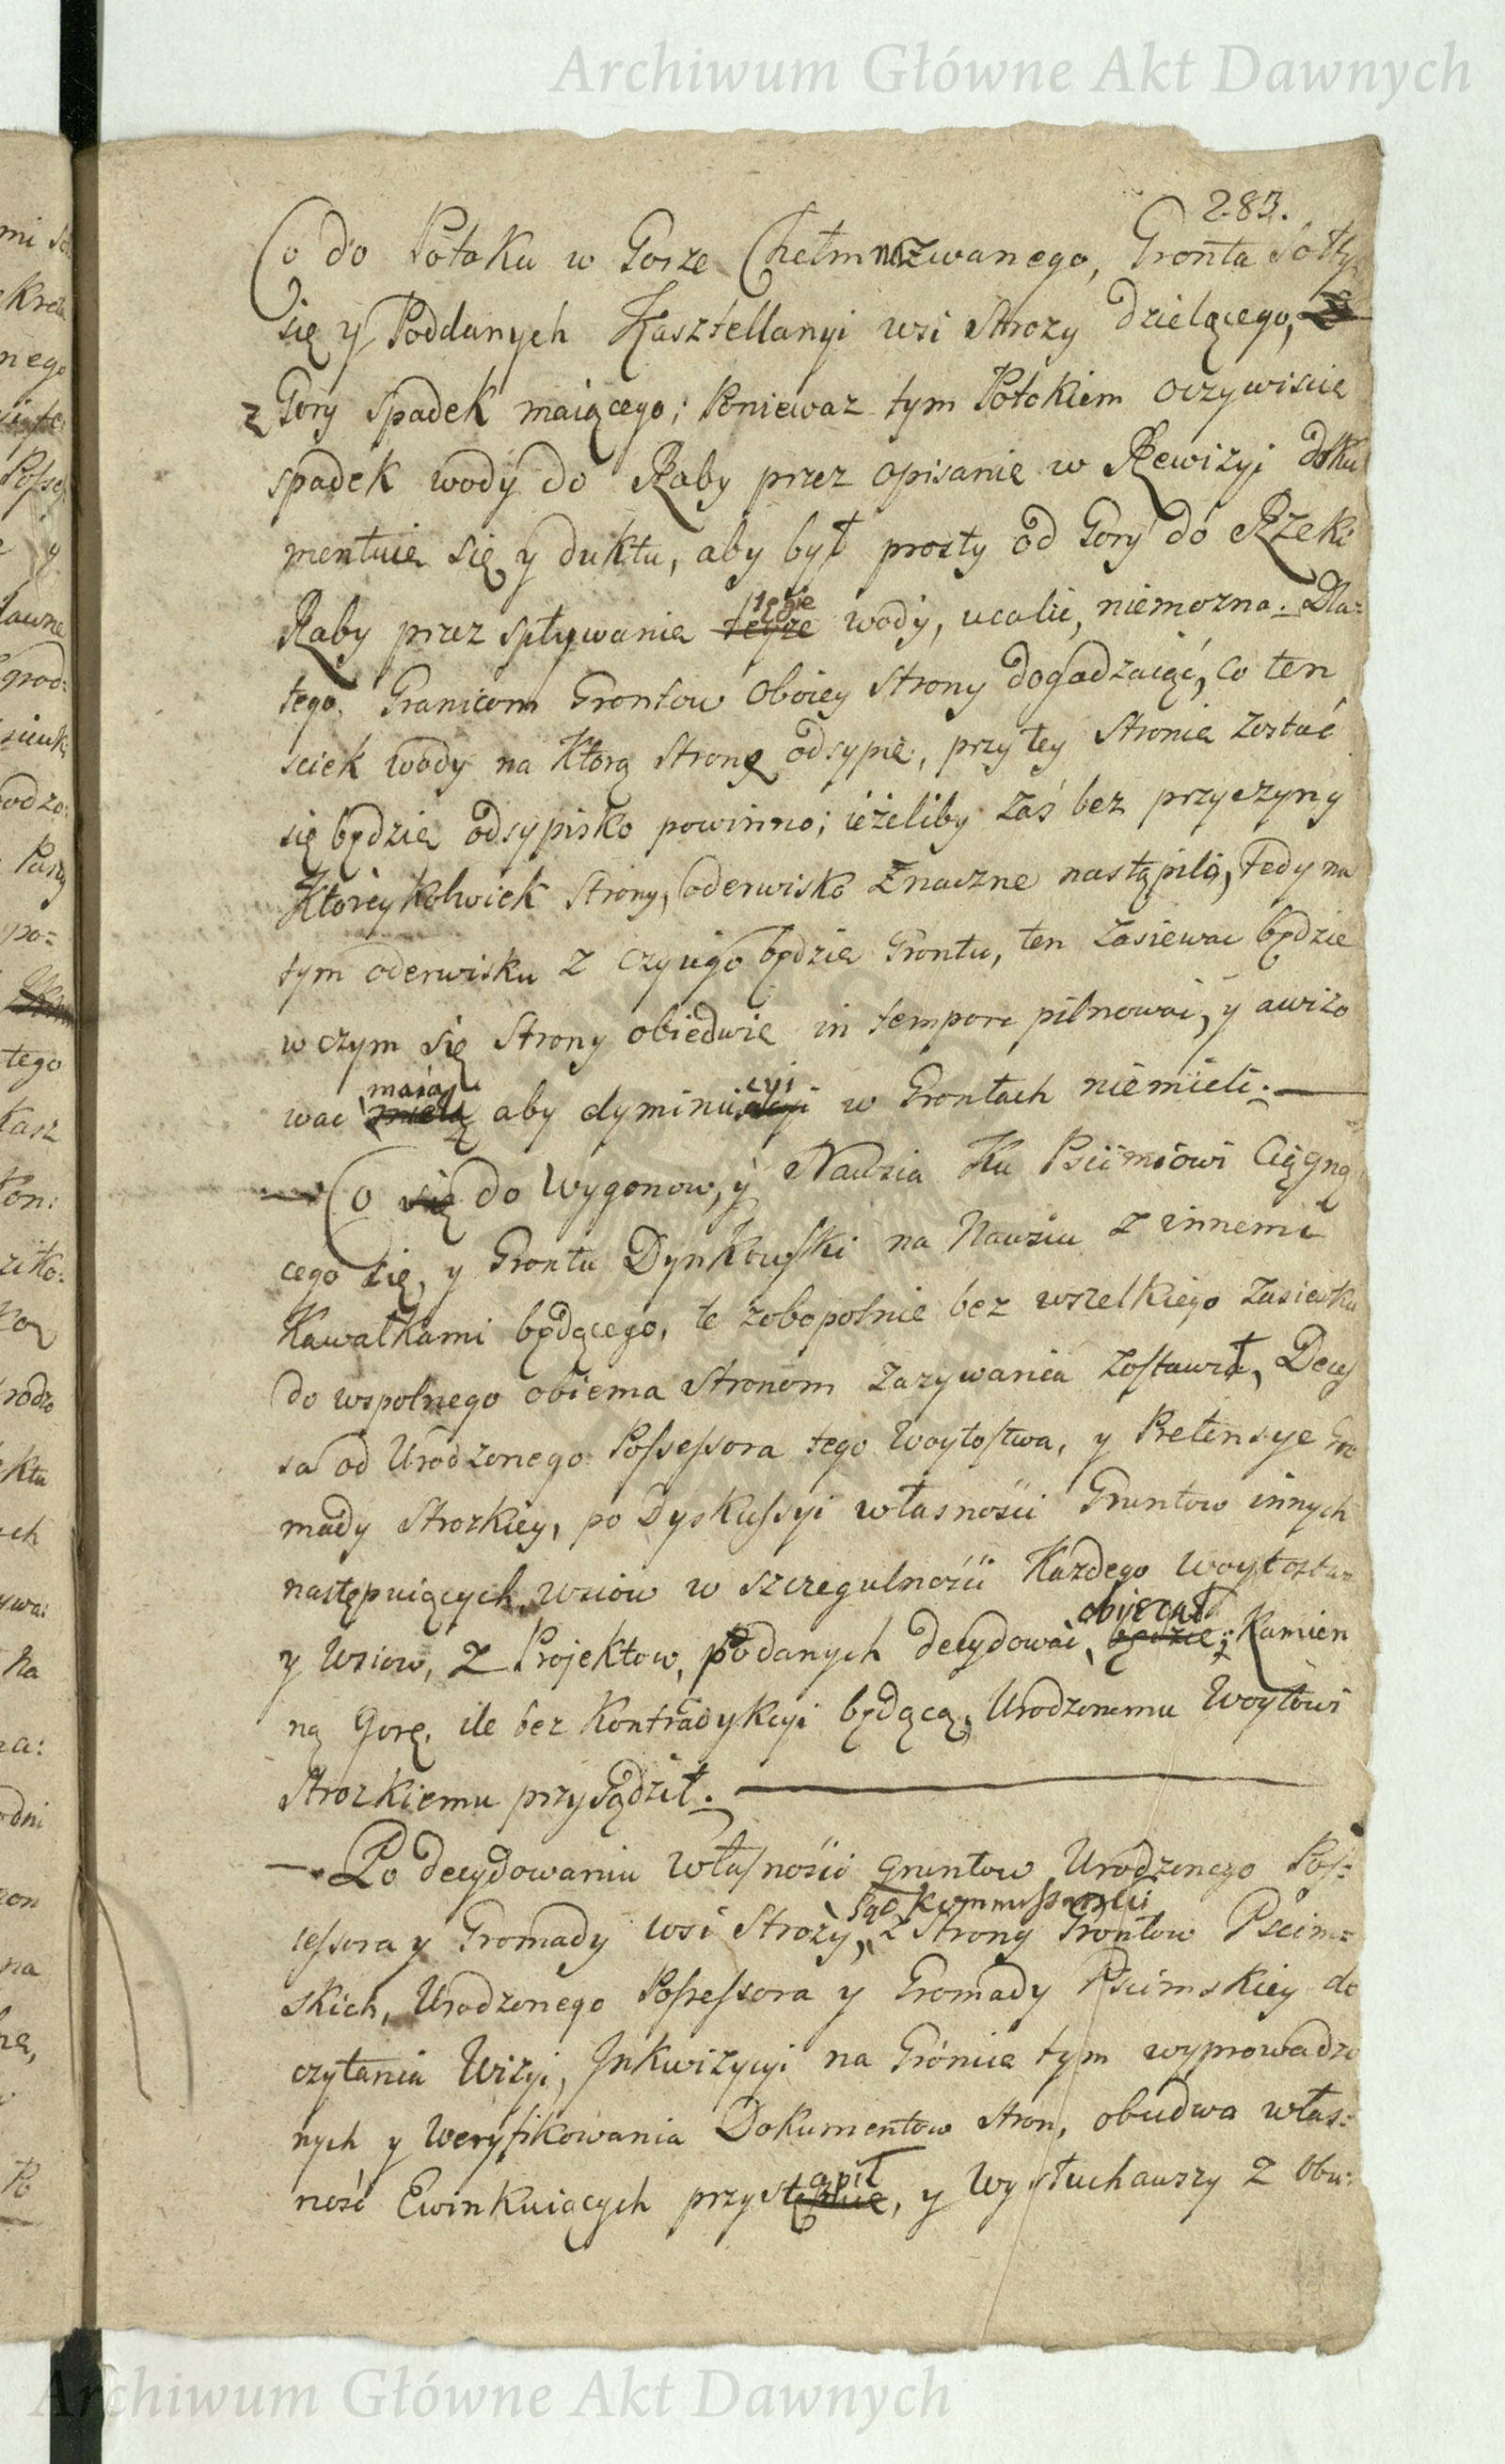 Archiwum Główne Akt Dawnych
283.
Co do Potoku w Gorze Chełm nazwanego, Gronta Sołty
się y Poddanych Kasztellanyi wsi Strozy dzielącego,
z Gory spadek maiącego; Poniewaz tym Potokiem oczywiscie
spadek wody do Raby przez opisanie w Rewizyi doku
mentuie się y duktu, aby był prosty od Gory do Rzeki
Raby przez spływanie teyze tęgie wody, ucalić, niemozna. Dla=
tego, Granicom Grontow oboiey Strony dogadzaiąc, co ten
sciek wody na Którą Stronę odsypie, przy tey Stronie zostać
się będzie odsypisko powinno; ieżeliby zaś bez przyczyny
Któreykolwiek Strony, oderwisko znaczne nastąpiło, tedy na
tym oderwisku z czyiego będzie Grontu, ten zasiewac będzie
w czym się Strony obiedwie in tempore pilnowai, y awizo
wac maią aby dyminucyi w Grontach niemieli.
Co się do Wygonow, y Nawsia Ku Pcimiowi Ciągną
cego się, y Grontu Dynkowski na Nawsiu z innemi
Kawałkami będącego, te zobopolnie bez wszelkiego zasiewku
do wspolnego obiema Stronom Zazywania zostawił, Decys
sa od Urodzonego Possessora tego Woytostwa, y Pretensye Gro
mady Strozkiey, po Dyskussyi własności Gruntow innych
następuiących wsiow w szczegulności Kazdego Woytostwa
y Wsiow, z Projektow, podanych decydowai, będzie obiecał; Kamien
ną Gorę, ile bez Kontradykcyi będącą, Urodzonemu Woytowi
Strozkiemu przysądził.
Po decydowaniu Własności gruntow Urodzonego Pos=
sessora y Gromady wsi Stroży, Sąd Kommissarski z Strony Grontow Pcim=
skich, Urodzonego Possessora y Gromady Pcimskiey do
czytania Wizyi, Inkwizycyi na Gróncie tym wyprowadzo
nych y Weryfikowania Dokumentow stron, obudwa włas=
ność Ewinkuiących przystąpił, y Wysłuchawszy z obu=
Archiwum Główne Akt Dawnych